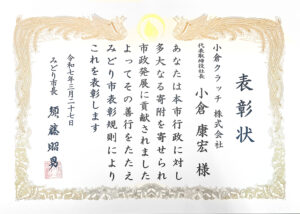 表彰状
小倉クラッチ 株式会社
代表取締役社長
小倉 康宏 様
あなたは本市行政に対し
多大なる寄附を寄せられ
市政発展に貢献されました
よってその善行をたたえ
みどり市表彰規則により
これを表彰します
令和七年三月二十七日
みどり市長 須藤昭男